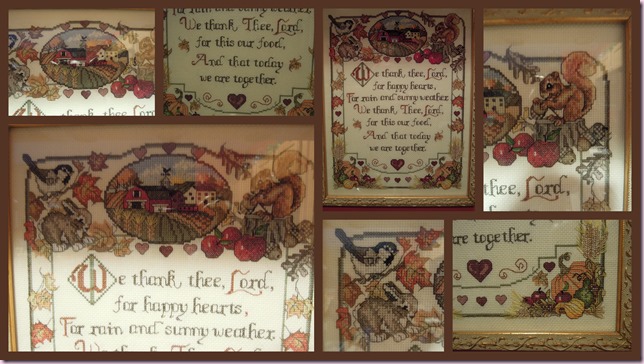 We thank thee, Lord
for rain and sunny weather.
We thank Thee, Lord,
for this our food,
And that today
we are together.
We thank thee, Lord,
for happy hearts,
For rain and sunny weather.
We thank Thee, Lord,
for this our food,
And that today
we are together.
thee, Lord,
We thank thee, Lord,
for happy hearts,
For rain and sunny weather.
We thank Thee, Lord
are together.